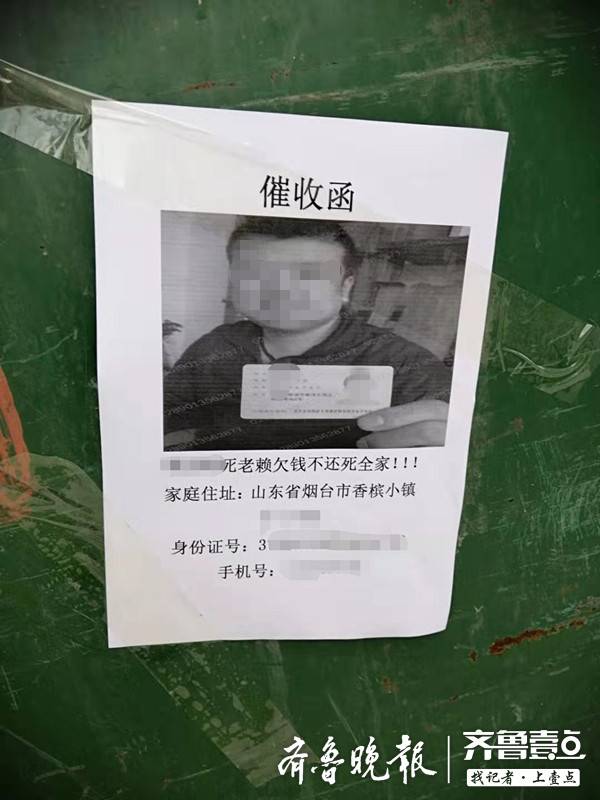 催收函
死老赖欠钱不还死全家!!!
家庭住址:山东省烟台市香槟小镇
身份证号:3
手机号:
齐鲁晚报
齐鲁壹点
找记者·上壹点